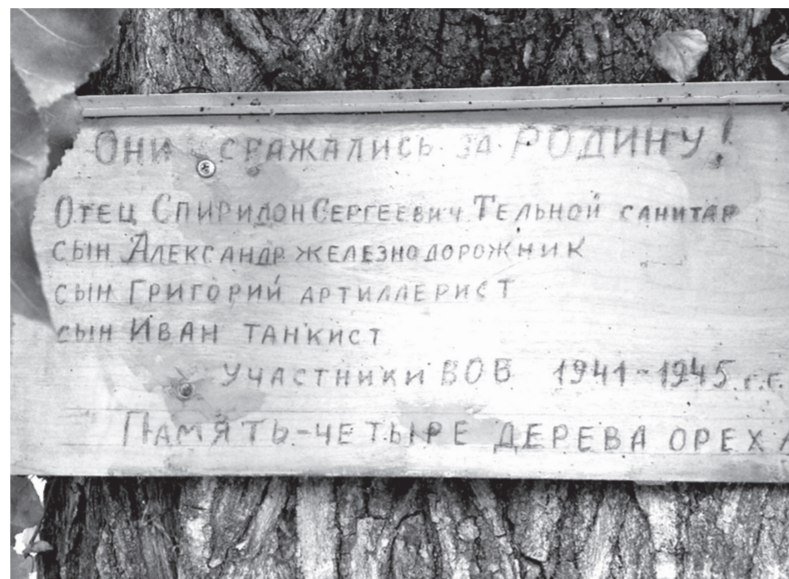 Они сражались за РОДИНУ!
Отец Спиридон Сергеевич Тельной санитар
сын Александр железнодорожник
сын Григорий артиллерист
сын Иван танкист
Участники ВОВ 1941-1945 г.г.
Память-четыре дерева ореха